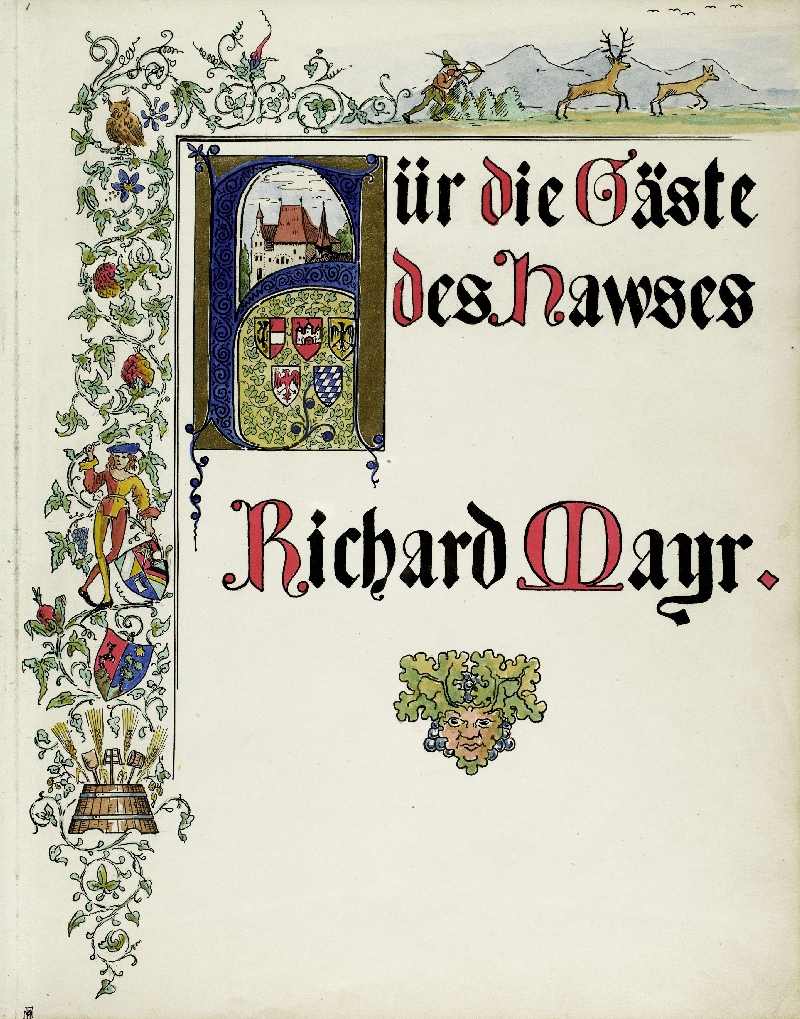 Für die Gäste
des Hawses
Richard Mayr.